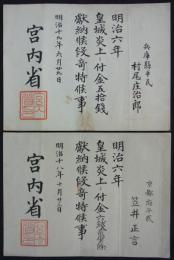 兵庫縣平民
村尾庄治郎
明治六年
皇城炎上ニ付金五拾銭
献納候段奇特候事
明治十九年六月廿九日
宮内省
京都府平民
笠井正言
明治六年
皇城炎上ニ付金
献納候段奇特候事
明治十八年十月廿三日
宮内省